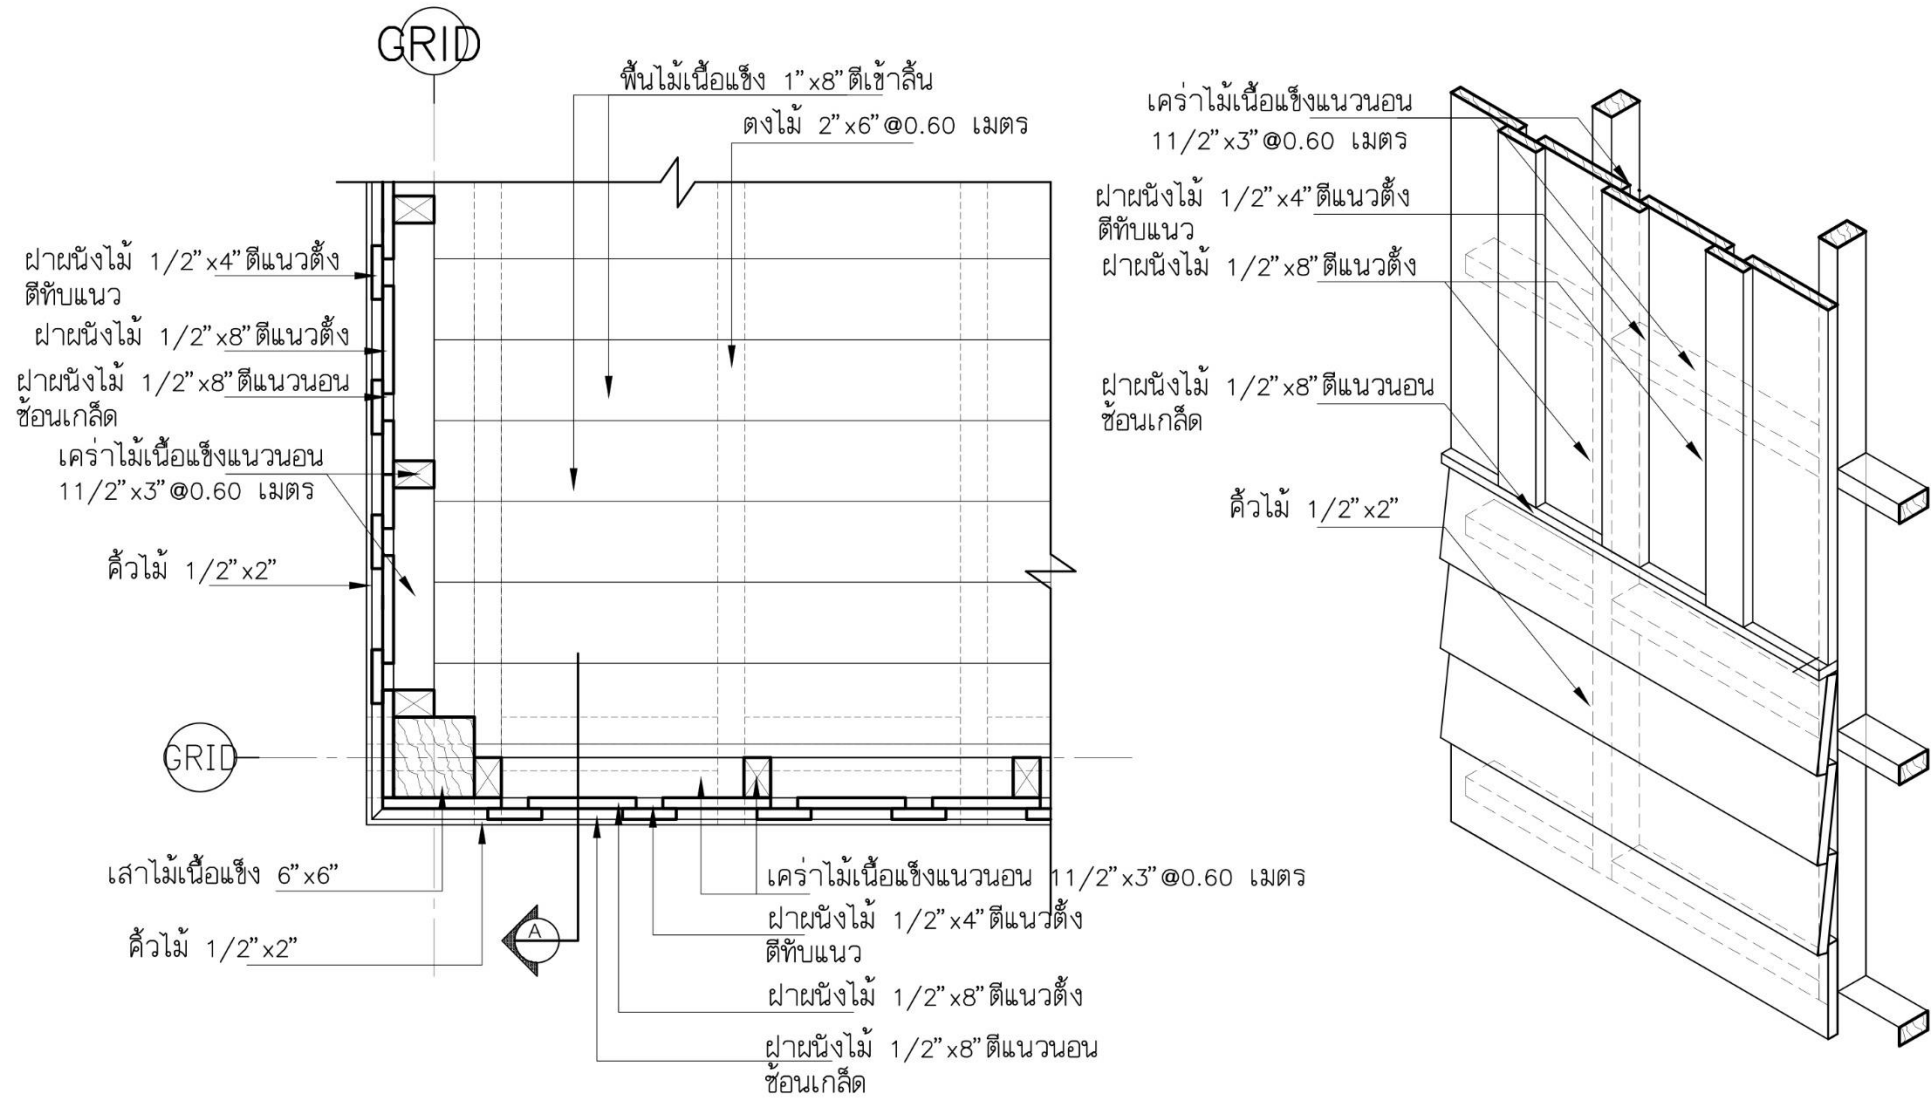 GRID
พื้นไม้เนื้อแข็ง 1"x8"ตีเข้าลิ้น
ตงไม้ 2"x6"@0.60 เมตร
ฝาผนังไม้ 1/2"x4"ตีแนวตั้ง
ตีทับแนว
ฝาผนังไม้ 1/2"x8"ตีแนวตั้ง
ฝาผนังไม้ 1/2"x8"ตีแนวนอน
ซ้อนเกล็ด
เคร่าไม้เนื้อแข็งแนวนอน
11/2"x3"@0.60 เมตร
คิ้วไม้ 1/2"x2"
GRID
เสาไม้เนื้อแข็ง 6"x6"
คิ้วไม้ 1/2"x2"
A
เคร่าไม้เนื้อแข็งแนวนอน 11/2"x3"@0.60 เมตร
ฝาผนังไม้ 1/2"x4"ตีแนวตั้ง
ตีทับแนว
ฝาผนังไม้ 1/2"x8"ตีแนวตั้ง
ฝาผนังไม้ 1/2"x8"ตีแนวนอน
ซ้อนเกล็ด
เคร่าไม้เนื้อแข็งแนวนอน
11/2"x3"@0.60 เมตร
ฝาผนังไม้ 1/2"x4"ตีแนวตั้ง
ตีทับแนว
ฝาผนังไม้ 1/2"x8"ตีแนวตั้ง
ฝาผนังไม้ 1/2"x8"ตีแนวนอน
ซ้อนเกล็ด
คิ้วไม้ 1/2"x2"